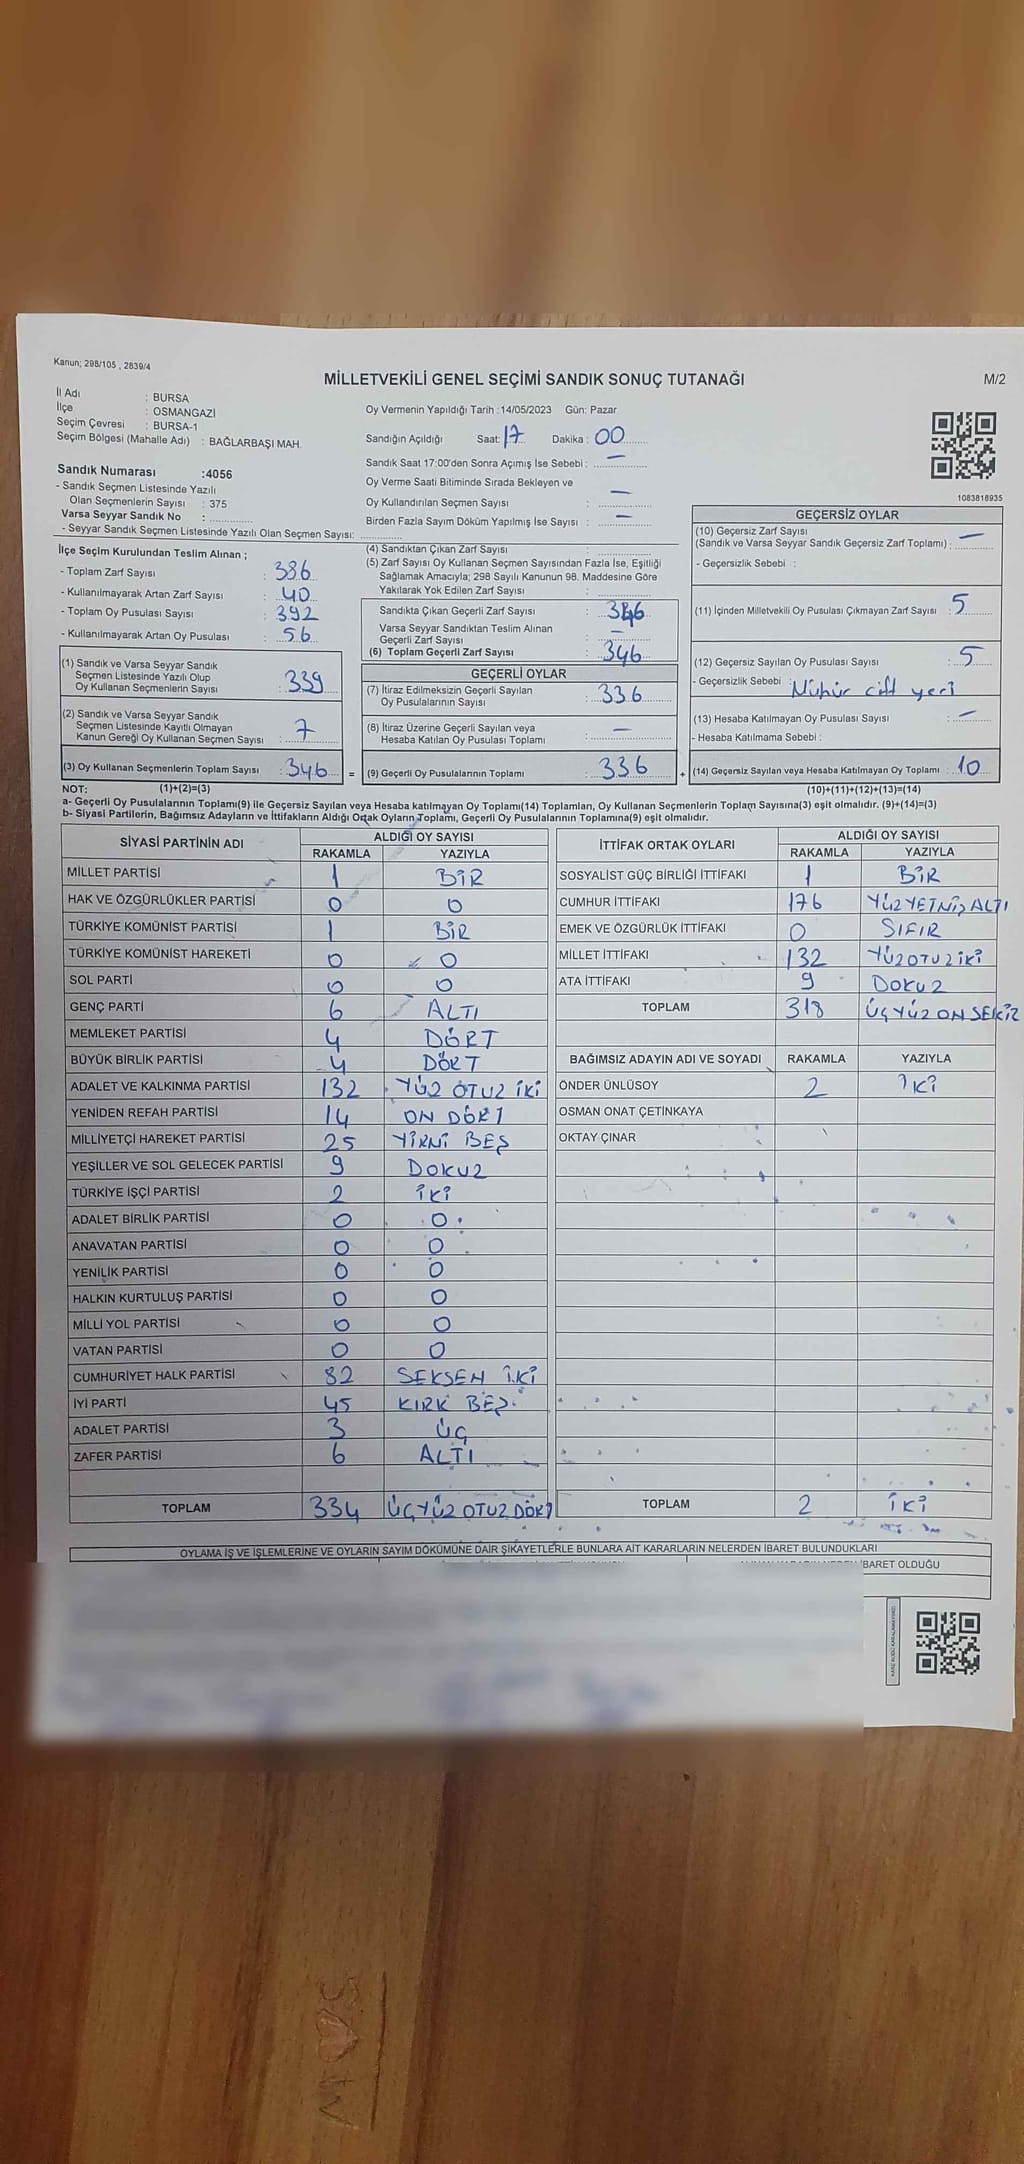 Kanun; 298/105 , 2839/4
MİLLETVEKİLİ GENEL SEÇİMİ SANDIK SONUÇ TUTANAĞI
M/2
İl Adı : BURSA
İlçe : OSMANGAZİ
Seçim Çevresi : BURSA-1
Seçim Bölgesi (Mahalle Adı) : BAĞLARBAŞI MAH.
Sandık Numarası :4056
- Sandık Seçmen Listesinde Yazılı
Olan Seçmenlerin Sayısı : 375
Varsa Seyyar Sandık No :
- Seyyar Sandık Seçmen Listesinde Yazılı Olan Seçmen Sayısı:
Oy Vermenin Yapıldığı Tarih :14/05/2023 Gün: Pazar
Sandığın Açıldığı Saat: 17 Dakika : 00
Sandık Saat 17:00'den Sonra Açımış İse Sebebi : —
Oy Verme Saati Bitiminde Sırada Bekleyen ve
Oy Kullandırılan Seçmen Sayısı : —
Birden Fazla Sayım Döküm Yapılmış İse Sayısı : —
1083818935
İlçe Seçim Kurulundan Teslim Alınan ;
- Toplam Zarf Sayısı : 386
- Kullanılmayarak Artan Zarf Sayısı : 40
- Toplam Oy Pusulası Sayısı : 392
- Kullanılmayarak Artan Oy Pusulası : 56
(1) Sandık ve Varsa Seyyar Sandık
Seçmen Listesinde Yazılı Olup
Oy Kullanan Seçmenlerin Sayısı : 339
(2) Sandık ve Varsa Seyyar Sandık
Seçmen Listesinde Kayıtlı Olmayan
Kanun Gereği Oy Kullanan Seçmen Sayısı : 7
(3) Oy Kullanan Seçmenlerin Toplam Sayısı : 346 =
(4) Sandıktan Çıkan Zarf Sayısı :
(5) Zarf Sayısı Oy Kullanan Seçmen Sayısından Fazla İse, Eşitliği
Sağlamak Amacıyla; 298 Sayılı Kanunun 98. Maddesine Göre
Yakılarak Yok Edilen Zarf Sayısı :
Sandıkta Çıkan Geçerli Zarf Sayısı : 346
Varsa Seyyar Sandıktan Teslim Alınan
Geçerli Zarf Sayısı : —
(6) Toplam Geçerli Zarf Sayısı : 346
GEÇERLİ OYLAR
(7) İtiraz Edilmeksizin Geçerli Sayılan
Oy Pusulalarının Sayısı : 336
(8) İtiraz Üzerine Geçerli Sayılan veya
Hesaba Katılan Oy Pusulası Toplamı : —
(9) Geçerli Oy Pusulalarının Toplamı : 336 +
GEÇERSİZ OYLAR
(10) Geçersiz Zarf Sayısı
(Sandık ve Varsa Seyyar Sandık Geçersiz Zarf Toplamı) : —
- Geçersizlik Sebebi :
(11) İçinden Milletvekili Oy Pusulası Çıkmayan Zarf Sayısı : 5
(12) Geçersiz Sayılan Oy Pusulası Sayısı : 5
- Geçersizlik Sebebi : Mühür çift yeri
(13) Hesaba Katılmayan Oy Pusulası Sayısı : —
- Hesaba Katılmama Sebebi :
(14) Geçersiz Sayılan veya Hesaba Katılmayan Oy Toplamı : 10
NOT: (1)+(2)=(3)
(10)+(11)+(12)+(13)=(14)
a- Geçerli Oy Pusulalarının Toplamı(9) ile Geçersiz Sayılan veya Hesaba katılmayan Oy Toplamı(14) Toplamları, Oy Kullanan Seçmenlerin Toplam Sayısına(3) eşit olmalıdır. (9)+(14)=(3)
b- Siyasi Partilerin, Bağımsız Adayların ve İttifakların Aldığı Ortak Oyların Toplamı, Geçerli Oy Pusulalarının Toplamına(9) eşit olmalıdır.
SİYASİ PARTİNİN ADI ALDIĞI OY SAYISI
RAKAMLA YAZIYLA
MİLLET PARTİSİ 1 BİR
HAK VE ÖZGÜRLÜKLER PARTİSİ 0 0
TÜRKİYE KOMÜNİST PARTİSİ 1 BİR
TÜRKİYE KOMÜNİST HAREKETİ 0 0
SOL PARTİ 0 0
GENÇ PARTİ 6 ALTI
MEMLEKET PARTİSİ 4 DÖRT
BÜYÜK BİRLİK PARTİSİ 4 DÖRT
ADALET VE KALKINMA PARTİSİ 132 YÜZ OTUZ İKİ
YENİDEN REFAH PARTİSİ 14 ON DÖRT
MİLLİYETÇİ HAREKET PARTİSİ 25 YİRMİ BEŞ
YEŞİLLER VE SOL GELECEK PARTİSİ 9 DOKUZ
TÜRKİYE İŞÇİ PARTİSİ 2 İKİ
ADALET BİRLİK PARTİSİ 0 0
ANAVATAN PARTİSİ 0 0
YENİLİK PARTİSİ 0 0
HALKIN KURTULUŞ PARTİSİ 0 0
MİLLİ YOL PARTİSİ 0 0
VATAN PARTİSİ 0 0
CUMHURİYET HALK PARTİSİ 82 SEKSEN İKİ
İYİ PARTİ 45 KIRK BEŞ
ADALET PARTİSİ 3 ÜÇ
ZAFER PARTİSİ 6 ALTI
TOPLAM 334 ÜÇYÜZ OTUZ DÖRT
İTTİFAK ORTAK OYLARI ALDIĞI OY SAYISI
RAKAMLA YAZIYLA
SOSYALİST GÜÇ BİRLİĞİ İTTİFAKI 1 BİR
CUMHUR İTTİFAKI 176 YÜZ YETMİŞ ALTI
EMEK VE ÖZGÜRLÜK İTTİFAKI 0 SIFIR
MİLLET İTTİFAKI 132 YÜZ OTUZ İKİ
ATA İTTİFAKI 9 DOKUZ
TOPLAM 318 ÜÇ YÜZ ON SEKİZ
BAĞIMSIZ ADAYIN ADI VE SOYADI RAKAMLA YAZIYLA
ÖNDER ÜNLÜSOY 2 İKİ
OSMAN ONAT ÇETİNKAYA
OKTAY ÇINAR
TOPLAM 2 İKİ
OYLAMA İŞ VE İŞLEMLERİNE VE OYLARIN SAYIM DÖKÜMÜNE DAİR ŞİKAYETLERLE BUNLARA AİT KARARLARIN NELERDEN İBARET BULUNDUKLARI
İBARET OLDUĞU